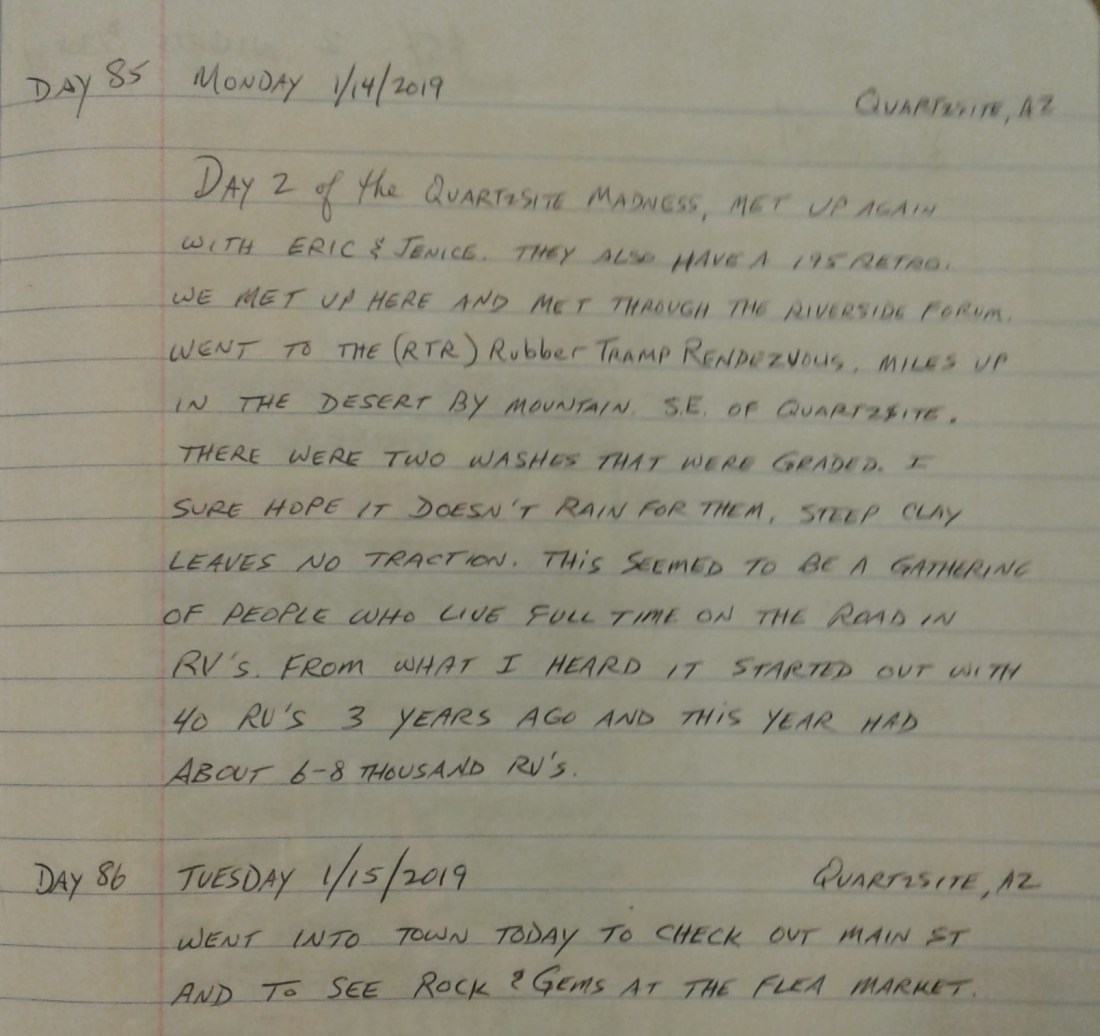 DAY 85 MONDAY 1/14/2019 QUARTZSITE, AZ
DAY 2 of the QUARTZSITE MADNESS, MET UP AGAIN
WITH ERIC & JENICE. THEY ALSO HAVE A 195 RETRO.
WE MET UP HERE AND MET THROUGH THE RIVERSIDE FORUM.
WENT TO THE (RTR) RubbER TRAMP RENDEZVOUS, MILES UP
IN THE DESERT BY MOUNTAIN. S.E. OF QUARTZSITE.
THERE WERE TWO WASHES THAT WERE GRADED. I
SURE HOPE IT DOESN'T RAIN FOR THEM, STEEP CLAY
LEAVES NO TRACTION. THIS SEEMED TO BE A GATHERING
OF PEOPLE WHO LIVE FULL TIME ON THE ROAD IN
RV'S. FROM WHAT I HEARD IT STARTED OUT WITH
40 RV'S 3 YEARS AGO AND THIS YEAR HAD
ABOUT 6-8 THOUSAND RV'S.
DAY 86 TUESDAY 1/15/2019 QUARTZSITE, AZ
WENT INTO TOWN TODAY TO CHECK OUT MAIN ST
AND TO SEE ROCK & GEMS AT THE FLEA MARKET.